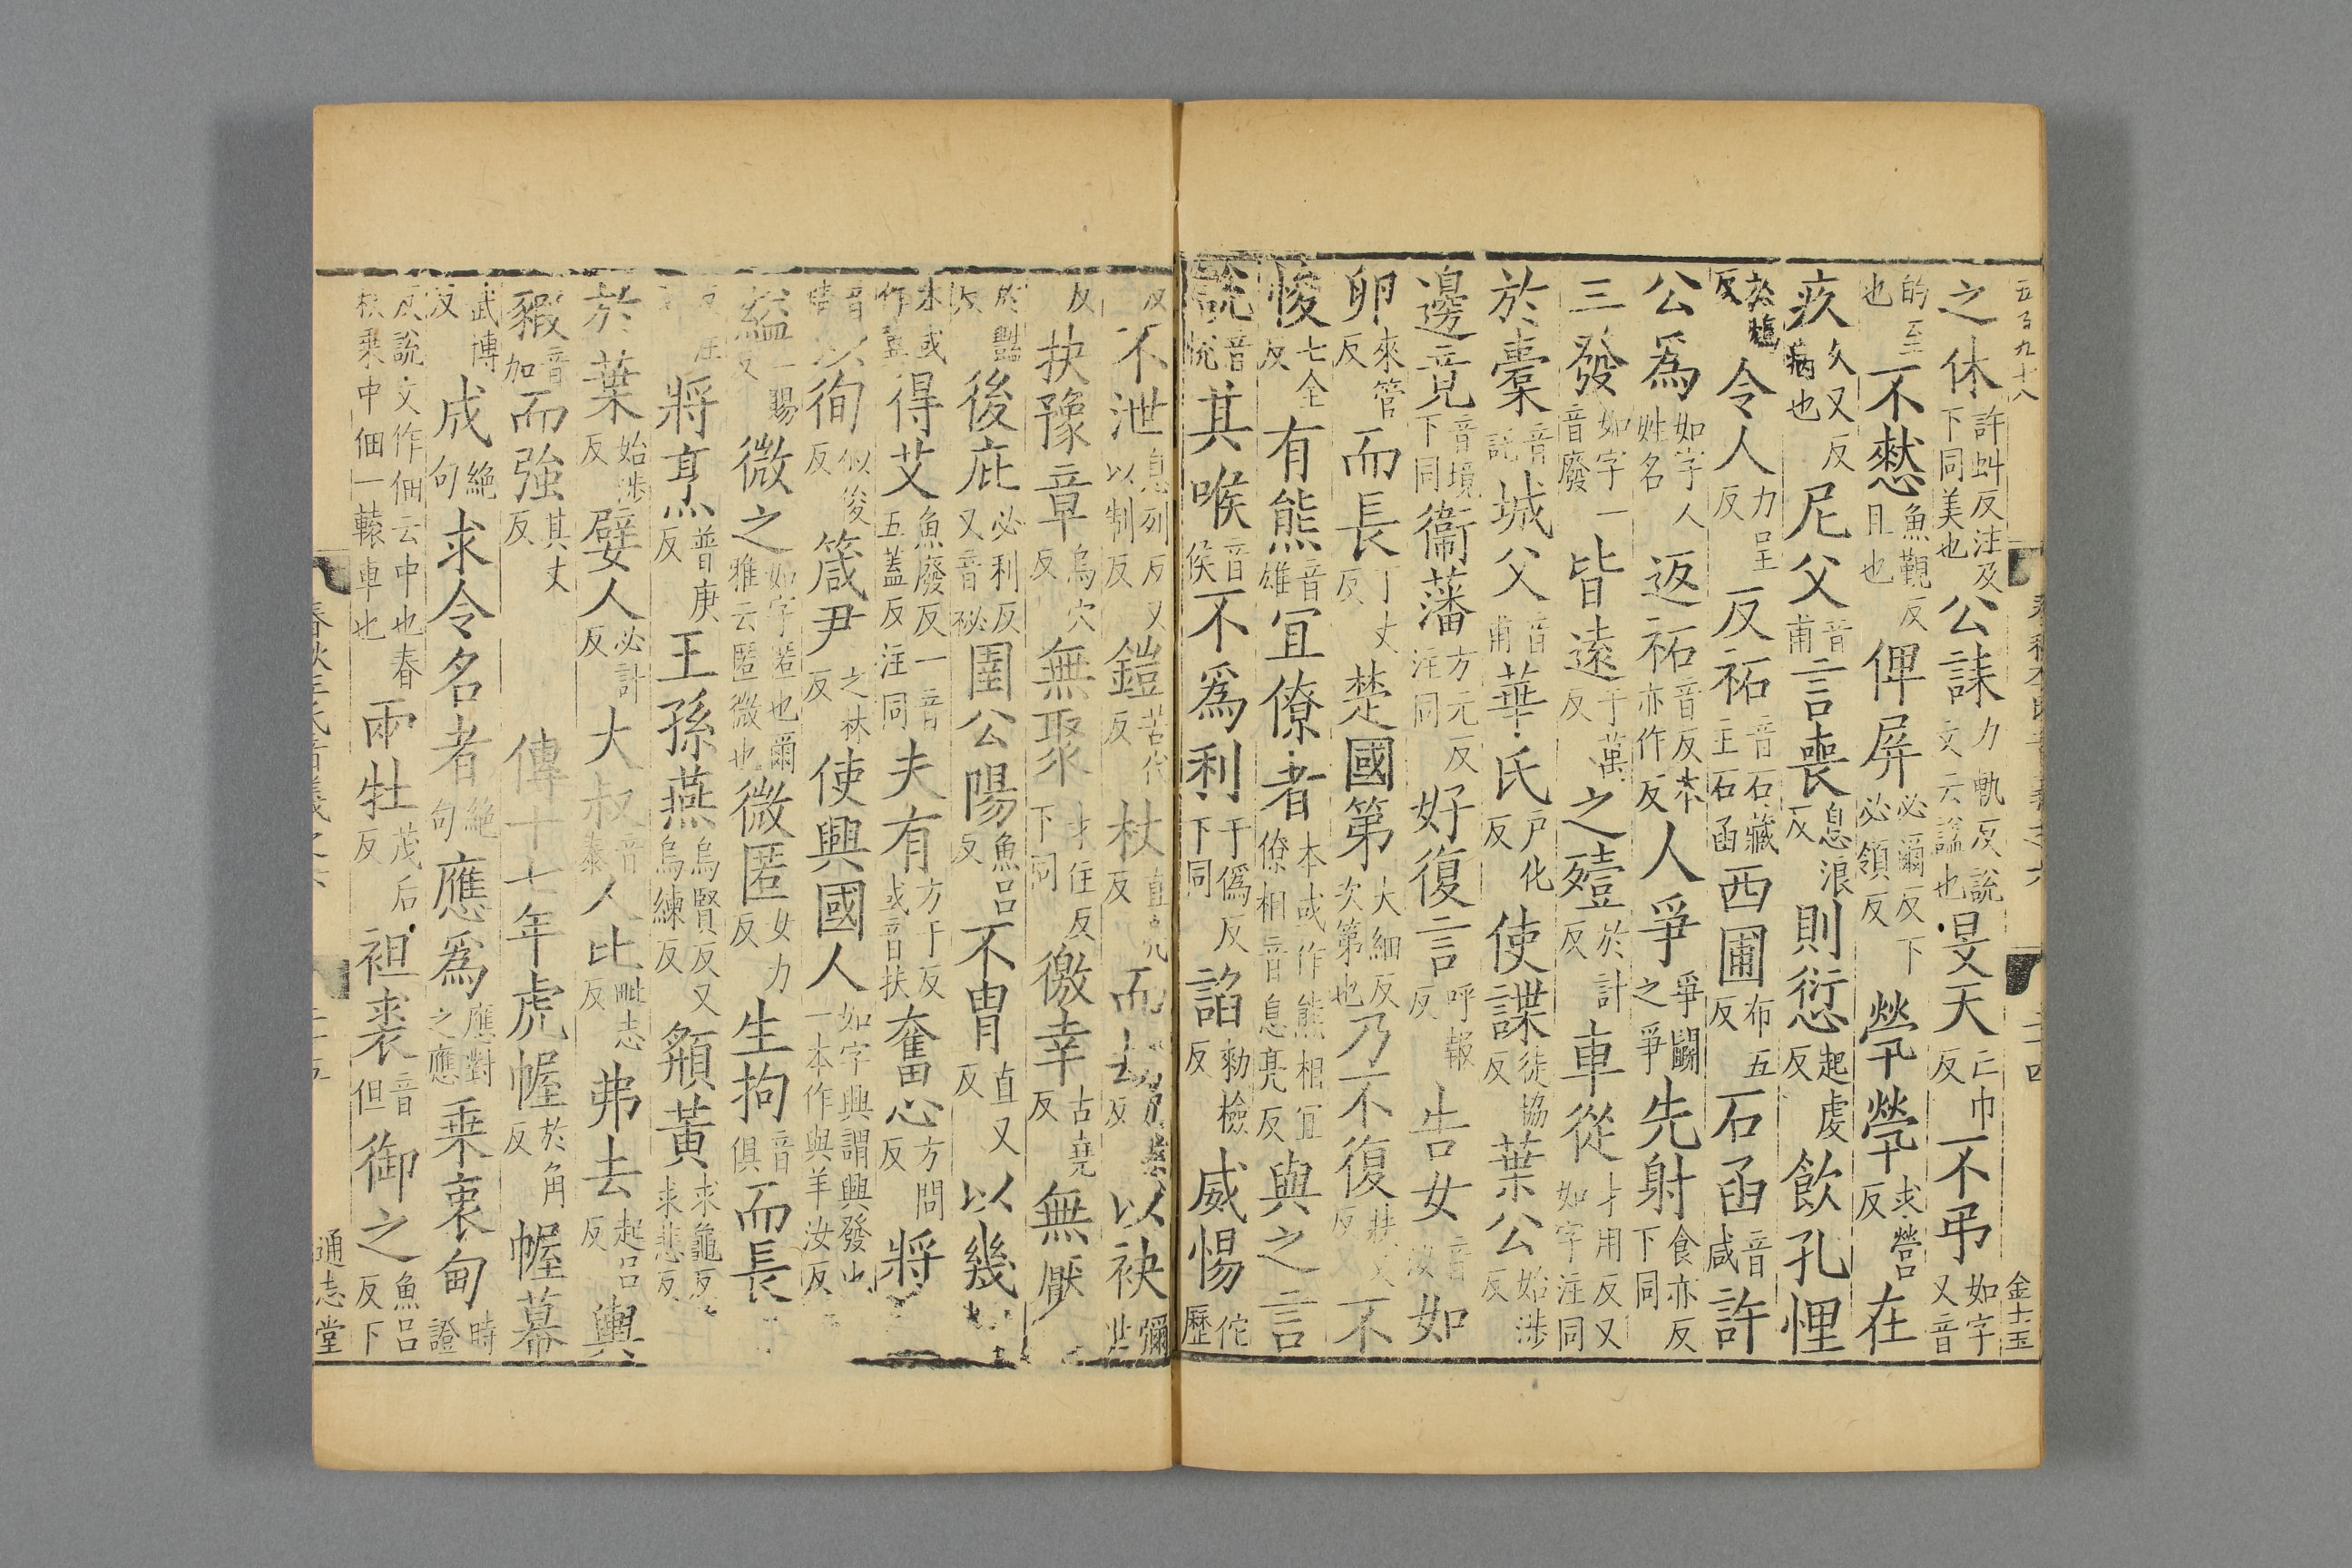 五百九十八 春秋左氏音義之六 二十四 金士玉
之休許虯反注及下同美也公誄力軌反說文云諡也旻天亡巾反不弔如字又音
的至也不憖魚覲反且也俾屏必爾反下必領反煢煢求營反在
疚久又反病也尼父音甫言喪息浪反則愆起虔反飲孔悝
於鴆反令人力呈反反祏音石藏主石函西圃布五反石函音咸許
公爲如字人姓名返祏音反本亦作反人爭爭鬭之爭先射食亦反下同
三發如字一音廢皆遠于萬反之殪於計反車從才用反又如字注同
於橐音託城父音甫華氏戶化反使諜徒協反葉公始涉反
邊竟音境下同衞藩方元反注同好復言呼報反告女音汝如
卵來管反而長丁丈反楚國第大細反次第也乃不復扶又反不
悛七全反有熊音雄宜僚者本或作熊相宜僚相音息亮反與之言
說音悅其喉音侯不爲利于僞反下同諂勑檢反威惕佗歷
反不泄息列反又以制反鎧苦代反杖直亮反而去反以袂彌世
反抉豫章烏穴反無聚才住反下同徼幸古堯反無厭
於豔反後庇必利反又音祕圉公陽魚呂反不冑直又反以幾
本或作冀得艾魚廢反一音五蓋反注同夫有方于反或音扶奮心方問反將
音以徇似俊反箴尹之林反使興國人如字興謂興發也一本作與羊汝反
縊一賜反微之如字匿也爾雅云匿微也微匿女力反生拘音俱而長
反注將烹普庚反王孫燕烏賢反又烏練反頯黃求龜反求悲反
於葉始涉反嬖人必計反大叔音泰人比毗志反弗去起呂反輿
豭音加而強其丈反 傳十七年虎幄於角反幄幕
武博反成絕句求令名者絕句應爲應對之應乘衷甸時證
反說文作佃云中也春秋乘中佃一轅車也兩牡茂后反袒裘音但御之魚呂反下
春秋左氏音義之六 二十五 通志堂